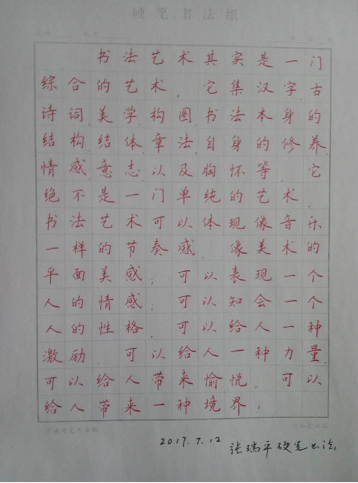 硬笔书法纸
书法艺术其实是一门
综合的艺术. 它集汉字古
诗词美学构图书法本身的
结构结体章法自身的修养
情感意志以及胸怀等. 它
绝不是一门单纯的艺术.
书法艺术可以体现像音乐
一样的节奏感. 像美术的
平面美感. 可以表现一个
人的情感. 可以知会一个
人的性格. 可以给人一种
激励. 可以给人一种力量.
可以给人带来愉悦. 可以
给人带来一种境界.
2017.7.12 张瑞平硬笔书法.